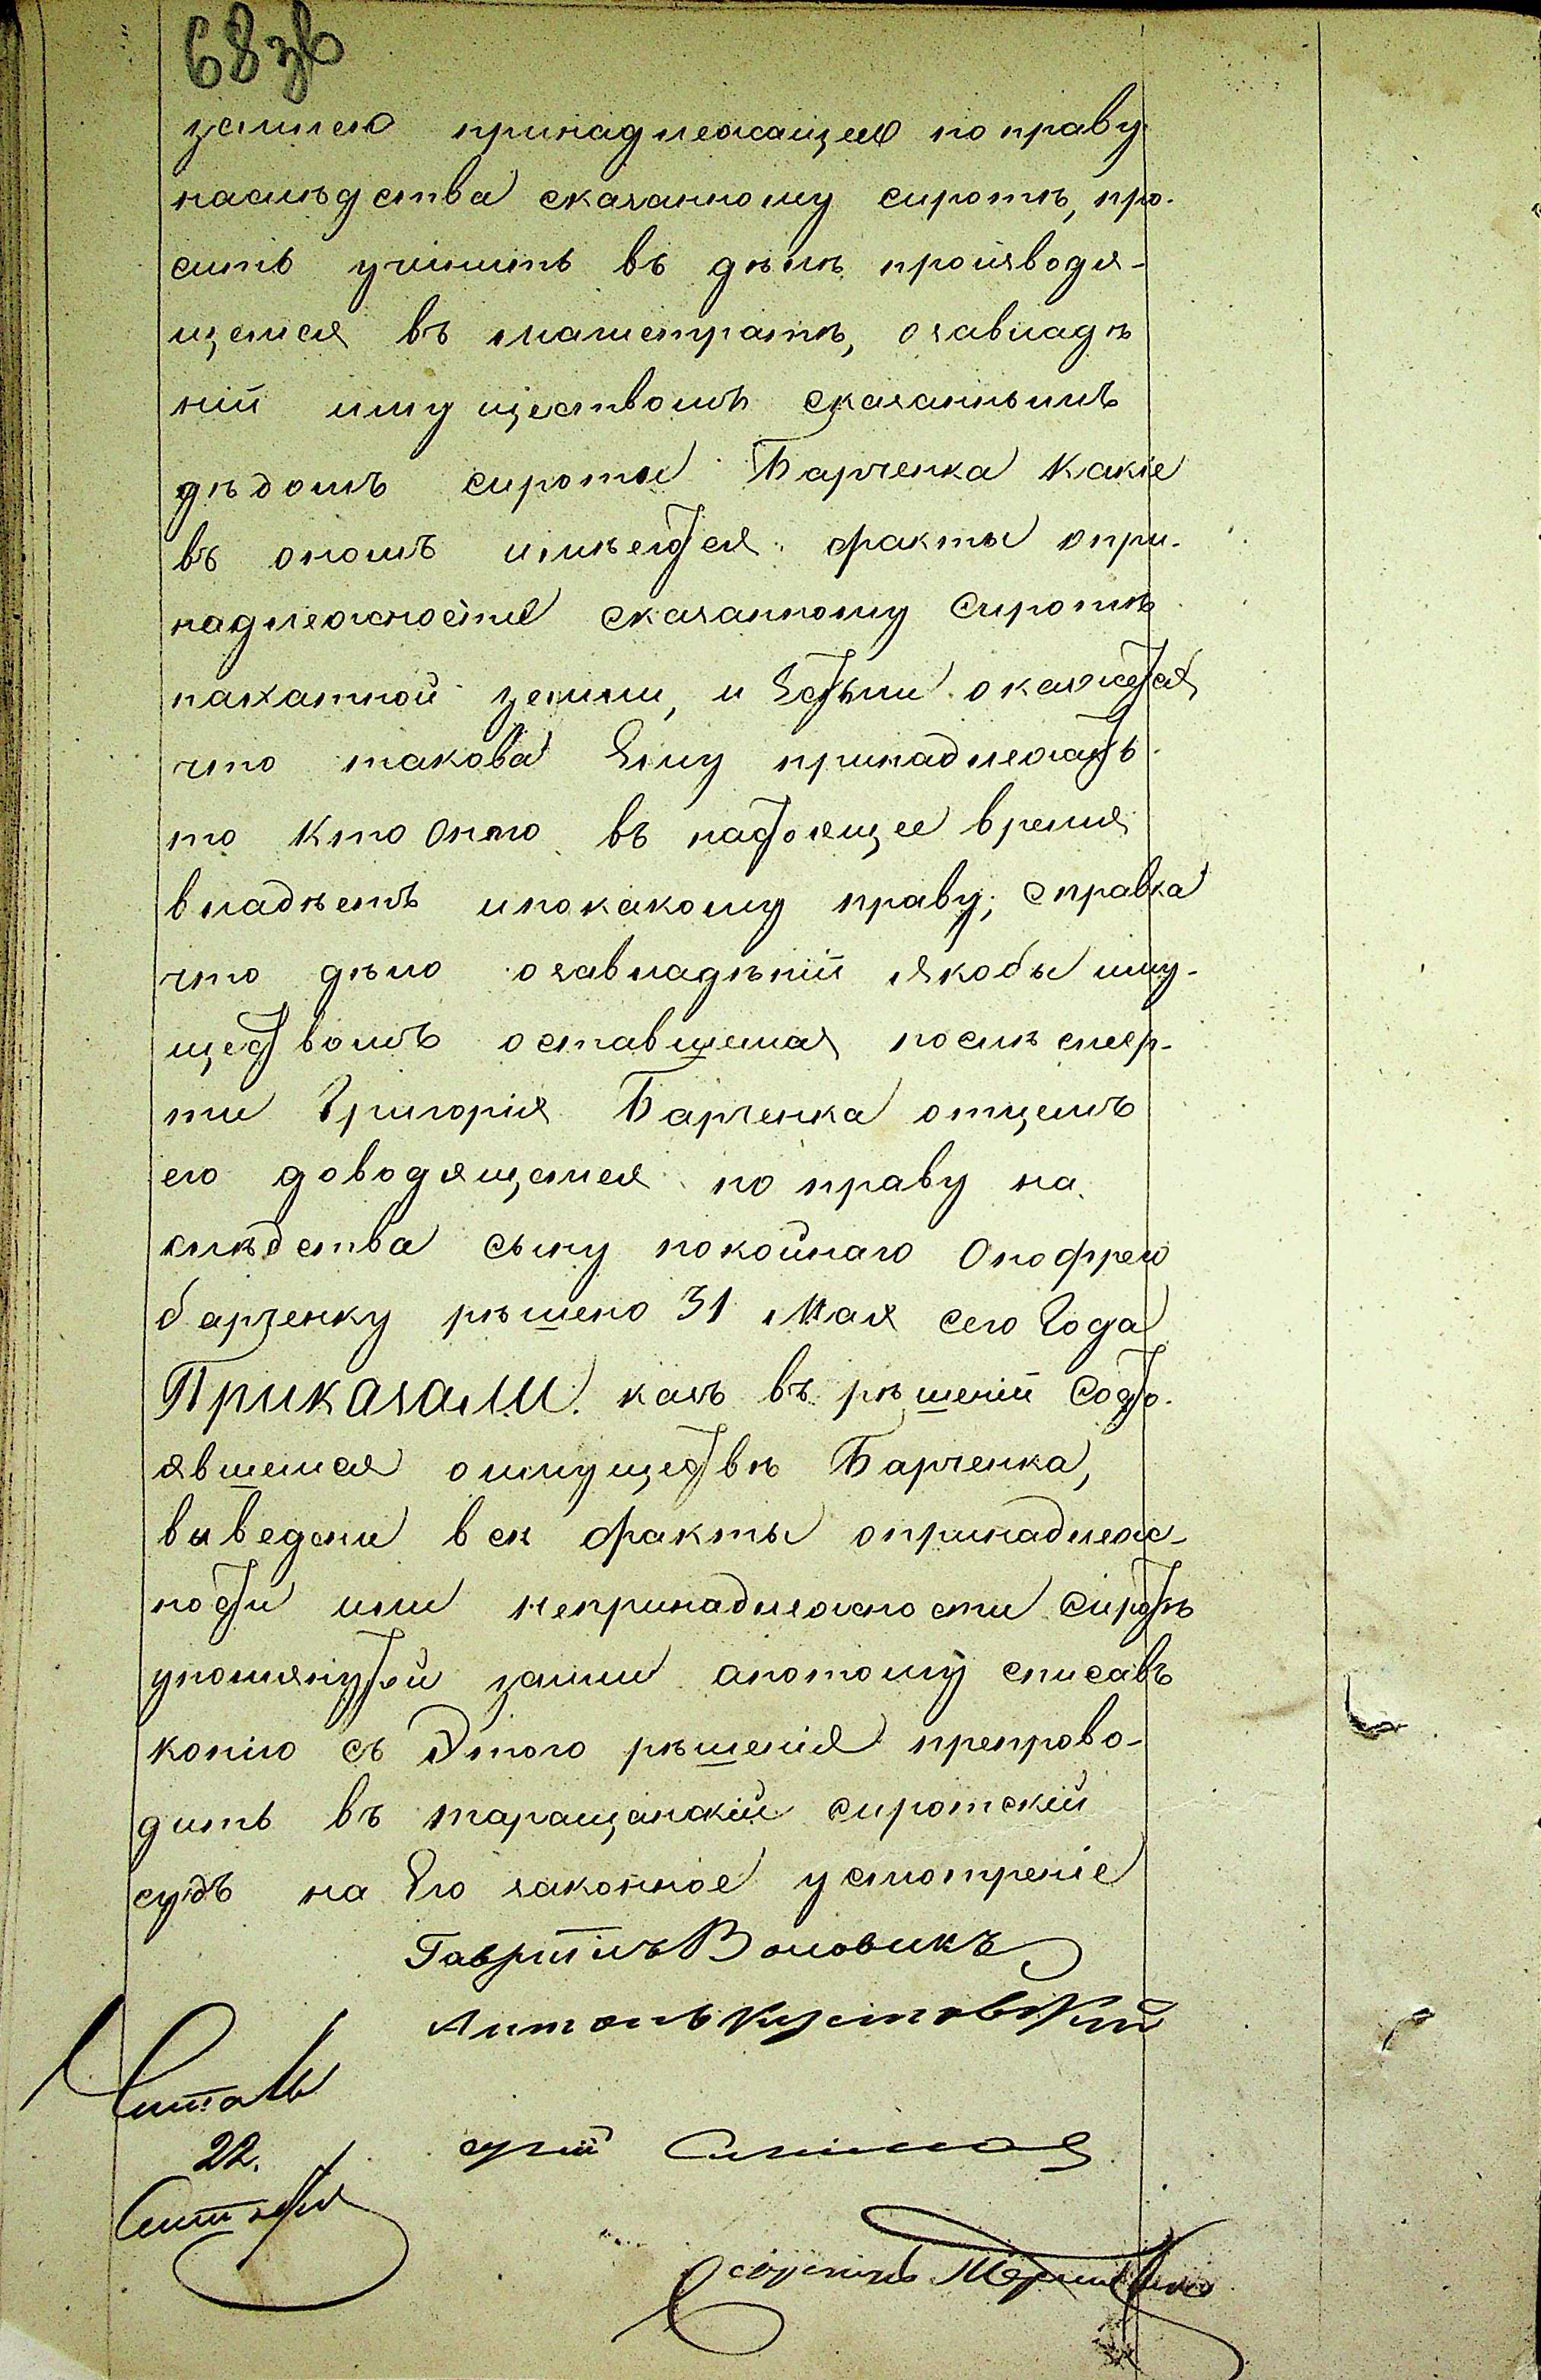 68 зв
землею принадлежащею по праву
наслѣдства сказанному сиротѣ, про-
ситъ учинить въ дѣлѣ производя-
щемся въ магистратѣ, озавладѣ
ній имуществомъ сказаннымъ
дѣдомъ сироты Барченка какіе
въ ономъ имѣются факты опри-
надлежности сказанному сиротѣ
пахатной земли, и Естьли окажется
что такова Ему принадлежатъ
то кто Оною въ настоящее время
владѣетъ ипокакому праву; справка
что дѣло озавладѣній якобы иму-
ществомъ оставшемся послѣ смер-
ти Григорія Барченка отцемъ
его доводящемся по праву на
слѣдства сыну покойнаго Онофрею
барченку рѣшено 31 мая сего Года
Приказали какъ въ рѣшеній состо-
явшемся оимуществѣ Барченка,
выведены всѣ факты опринадлеж-
ности или непринадлежности сиротѣ
упомянутой земли апотому списавъ
копію съ Этого рѣшенія препрово-
дить въ таращанскій сиротскій
судъ на Его законное усмотреніе
Гавріилъ Воловикъ
Антонъ Кустовскій
Читалъ
22.